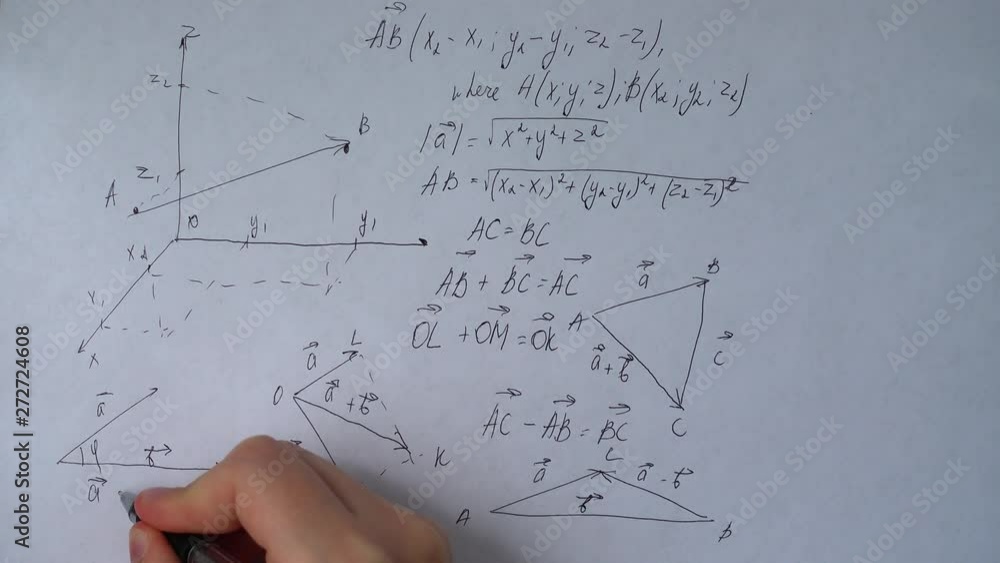 AB (x₂ - x₁; y₂ - y₁; z₂ - z₁),
where A(x; y; z); B(x₂; y₂; z₂)
|a| = √x² + y² + z²
AB = √(x₂ - x₁)² + (y₂ - y₁)² + (z₂ - z₁)²
AC = BC
AB + BC = AC
OL + OM = OK
AC - AB = BC
z
z₂
B
z₁
A
y₁
y₁
x₂
x₁
x
a
B
A
a + b
c
C
a
L
O
a + b
K
a
φ
b
a
L
a
a - b
b
A
Adobe Stock | #272724608